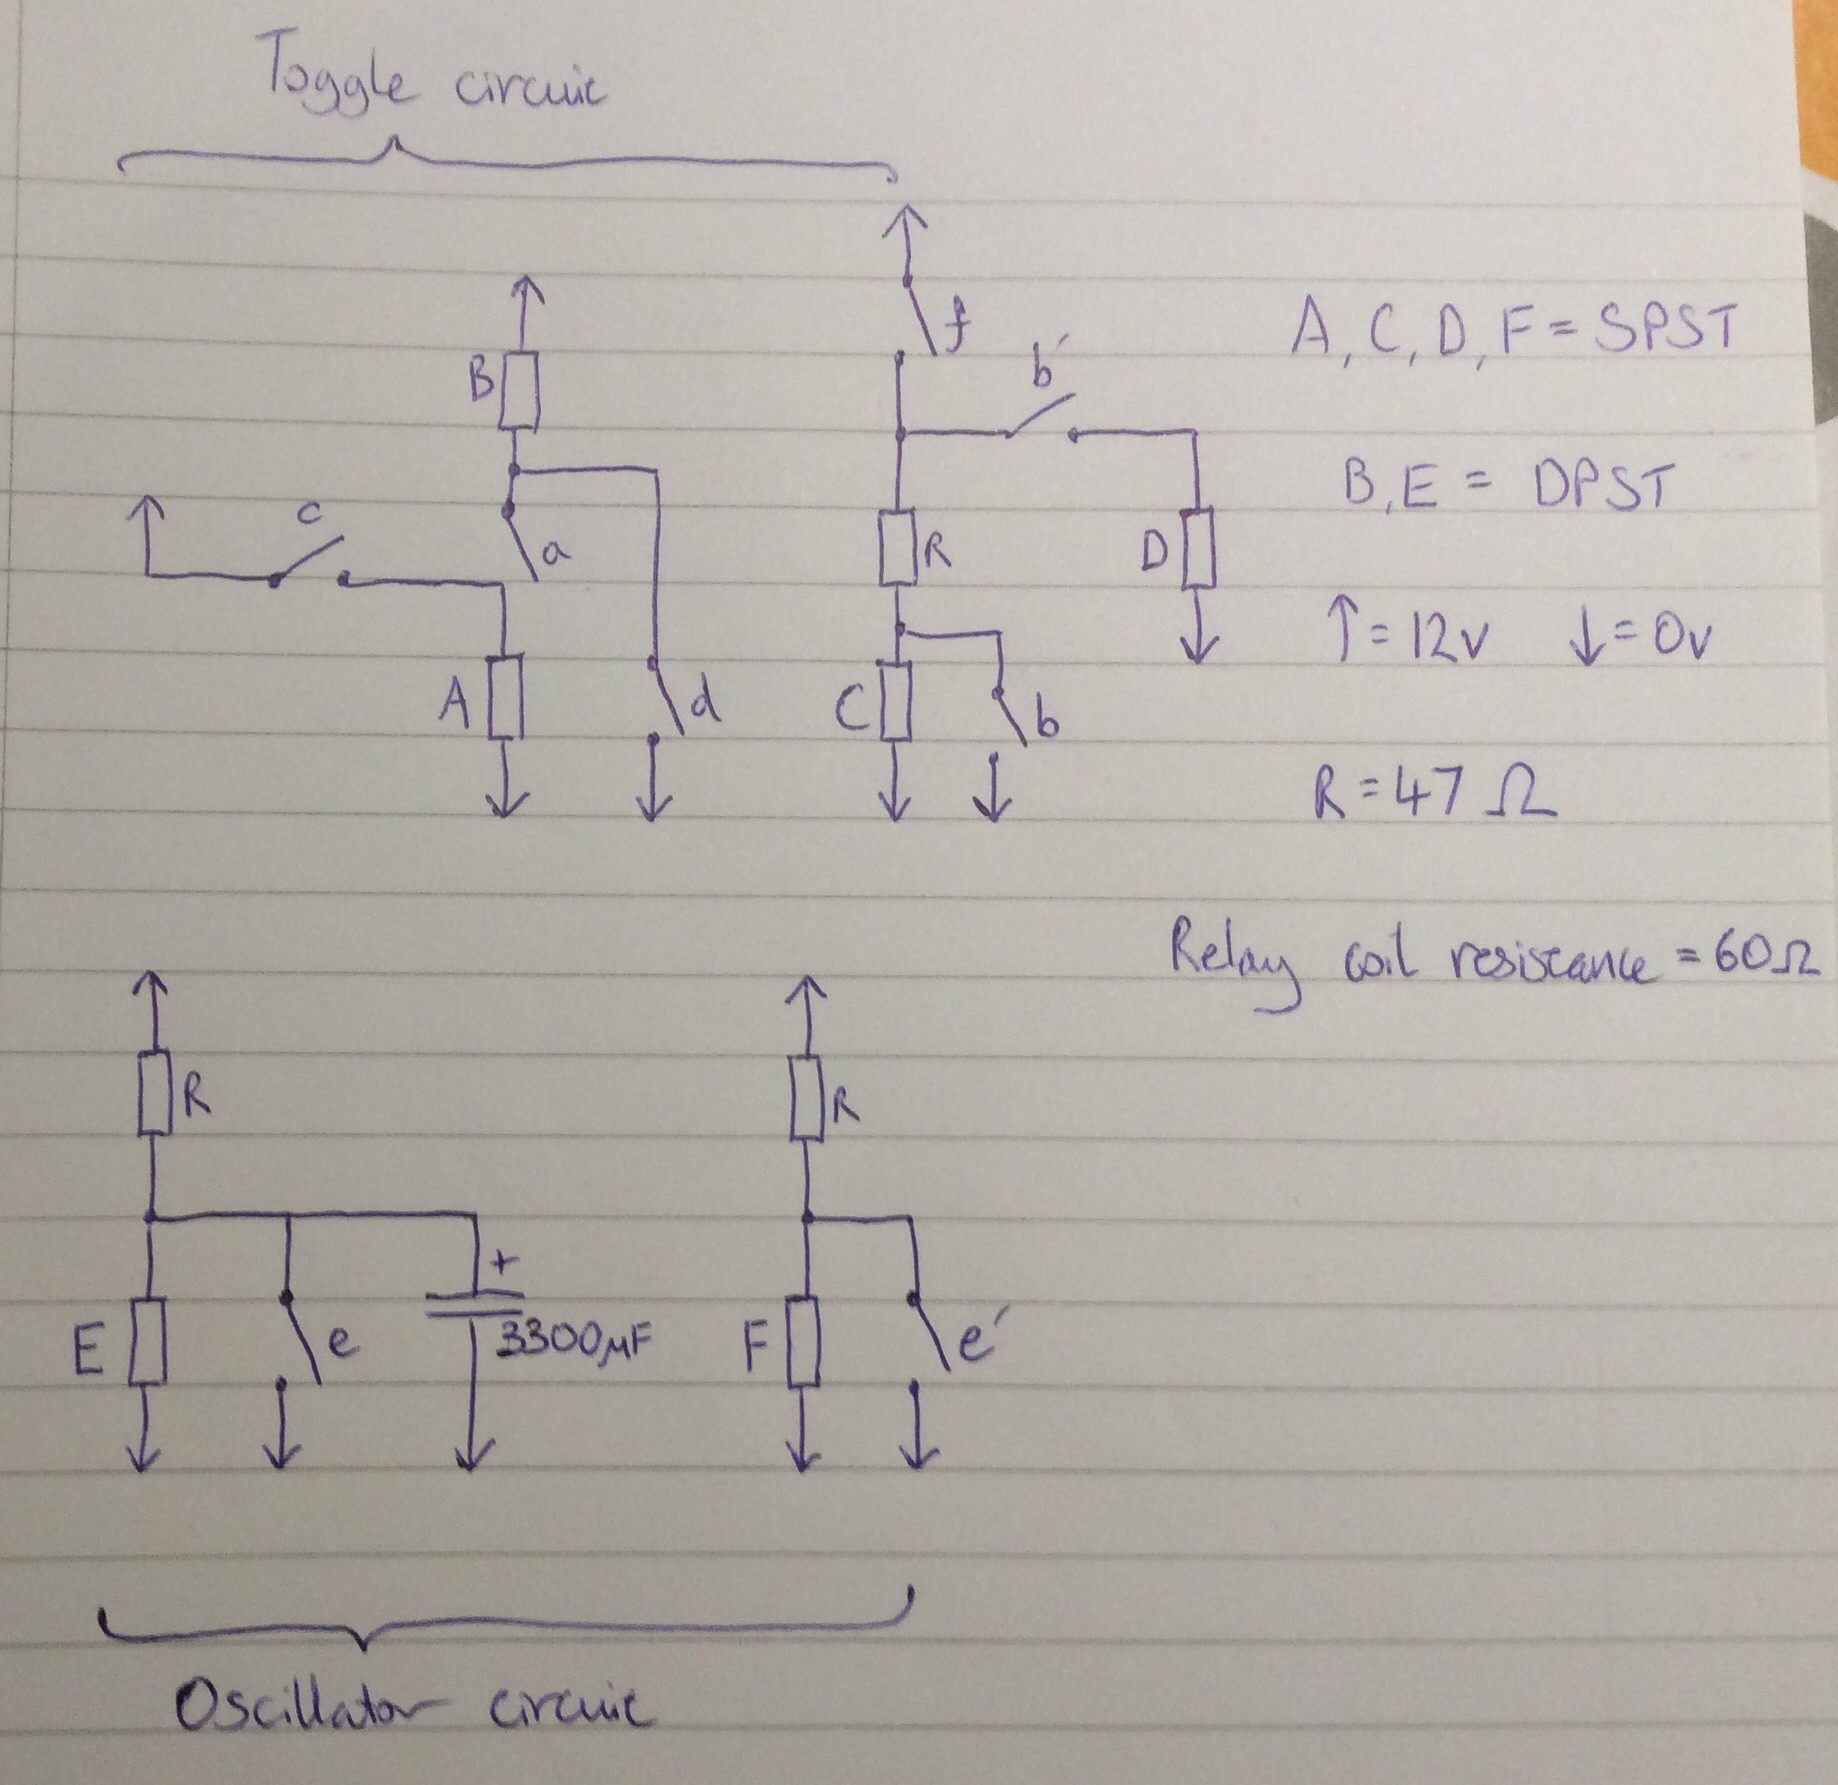 Toggle circuit
f
b'
A, C, D, F = SPST
B
c
a
B, E = DPST
R
D
↑ = 12v ↓ = 0v
A
d
C
b
R = 47 Ω
Relay coil resistance = 60Ω
R
R
+
E
e
3300µF
F
e'
Oscillator circuit